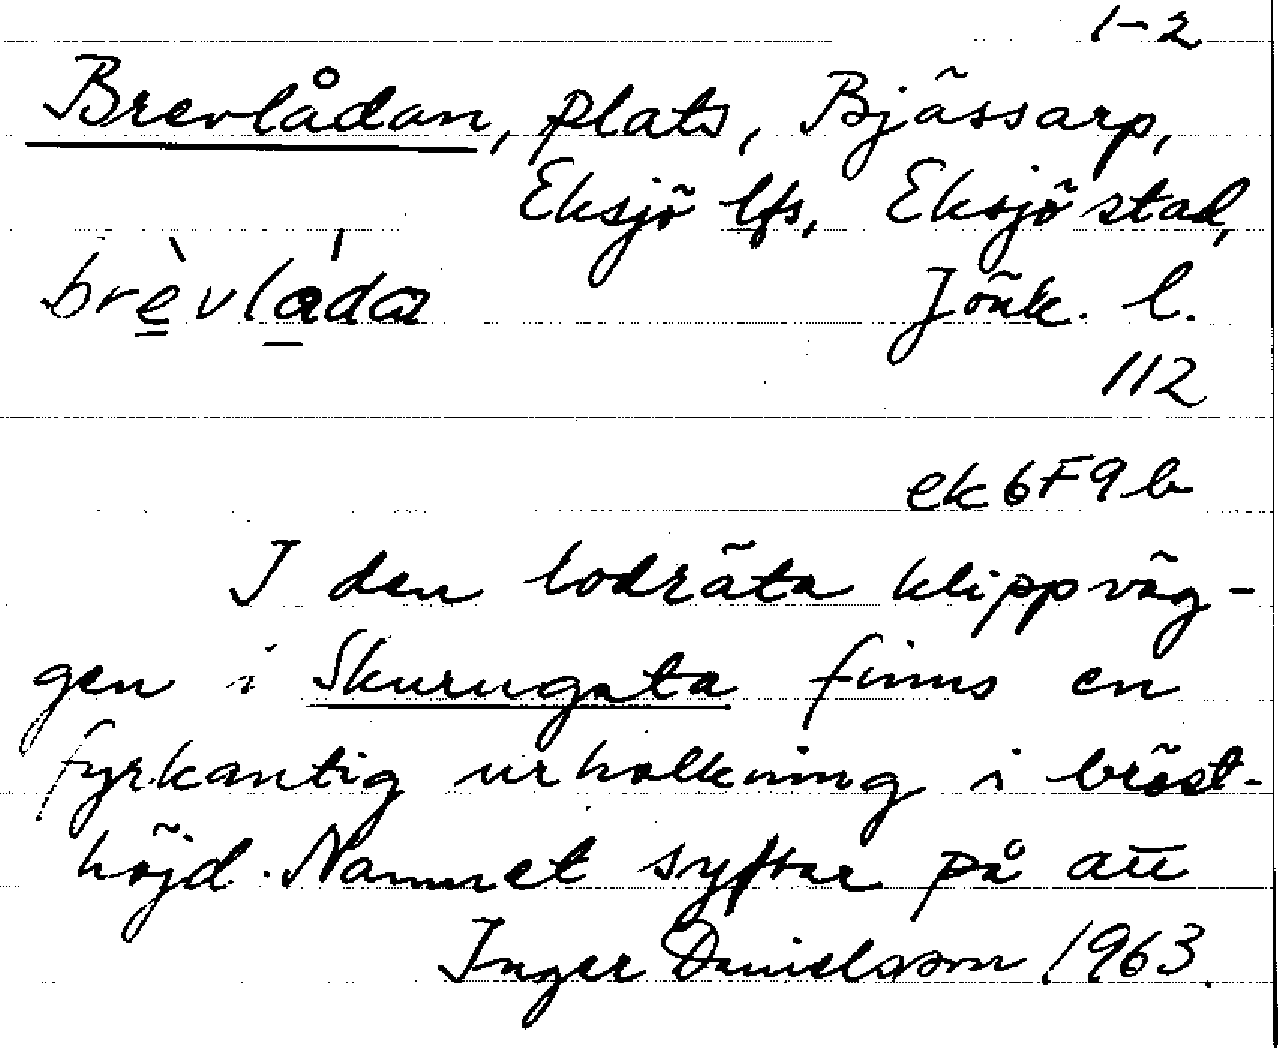 1-2
Brevlådan, plats, Bjässarp,
Eksjö lfs, Eksjö stad,
brèvláda Jönk. l.
112
ek 6F9b
I den lodräta klippväg-
gen i Skurugata finns en
fyrkantig urholkning i bröst-
höjd. Namnet syftar på att
Inger Danielsson 1963.